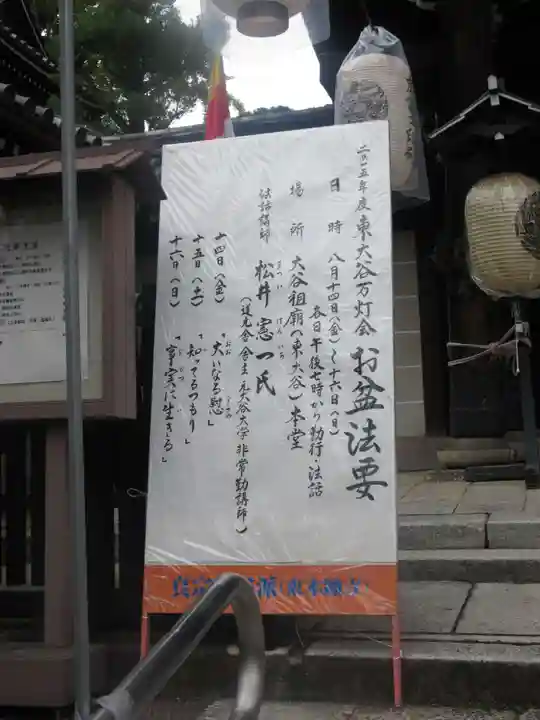 二〇一五年度東大谷万灯会 お盆法要
日時 八月十四日(金)〜十六日(日)
各日午後七時から勤行・法話
場所 大谷祖廟(東大谷)本堂
法話講師 松井憲一氏
まつい けんいち
(道光舎舎主 元大谷大学非常勤講師)
十四日(金) 「大いなる慰」
おお
十五日(土) 「知ってるつもり」
十六日(日) 「事実に生きる」
じじつ
(東本願寺)